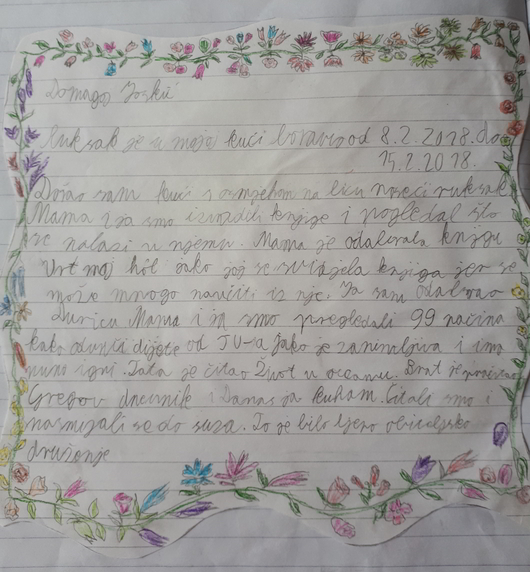 Domago Joskić
Ruksak je u mojoj kući boravio od 8.2.2018. do
15.2.2018.
Došao sam kući s osmjehom na licu noseći ruksak
Mama i ja smo izvadili knjige i pogledal što
se nalazi u njemu. Mama je odabrala knjigu
Vrt moj hobi jako joj se svidjela knjiga jer se
može mnogo naučiti iz nje. Ja sam odabrao
Duricu. Mama i ja smo pregledali 99 načina
kako odvući dijete od TV-a jako je zanimljiva i ima
puno igri. Tata je čitao Život u oceanu. Brat je pročitao
Gregov dnevnik i Danas ja kuham. Čitali smo i
nasmijali se do suza. To je bilo lijepo obiteljsko
druženje